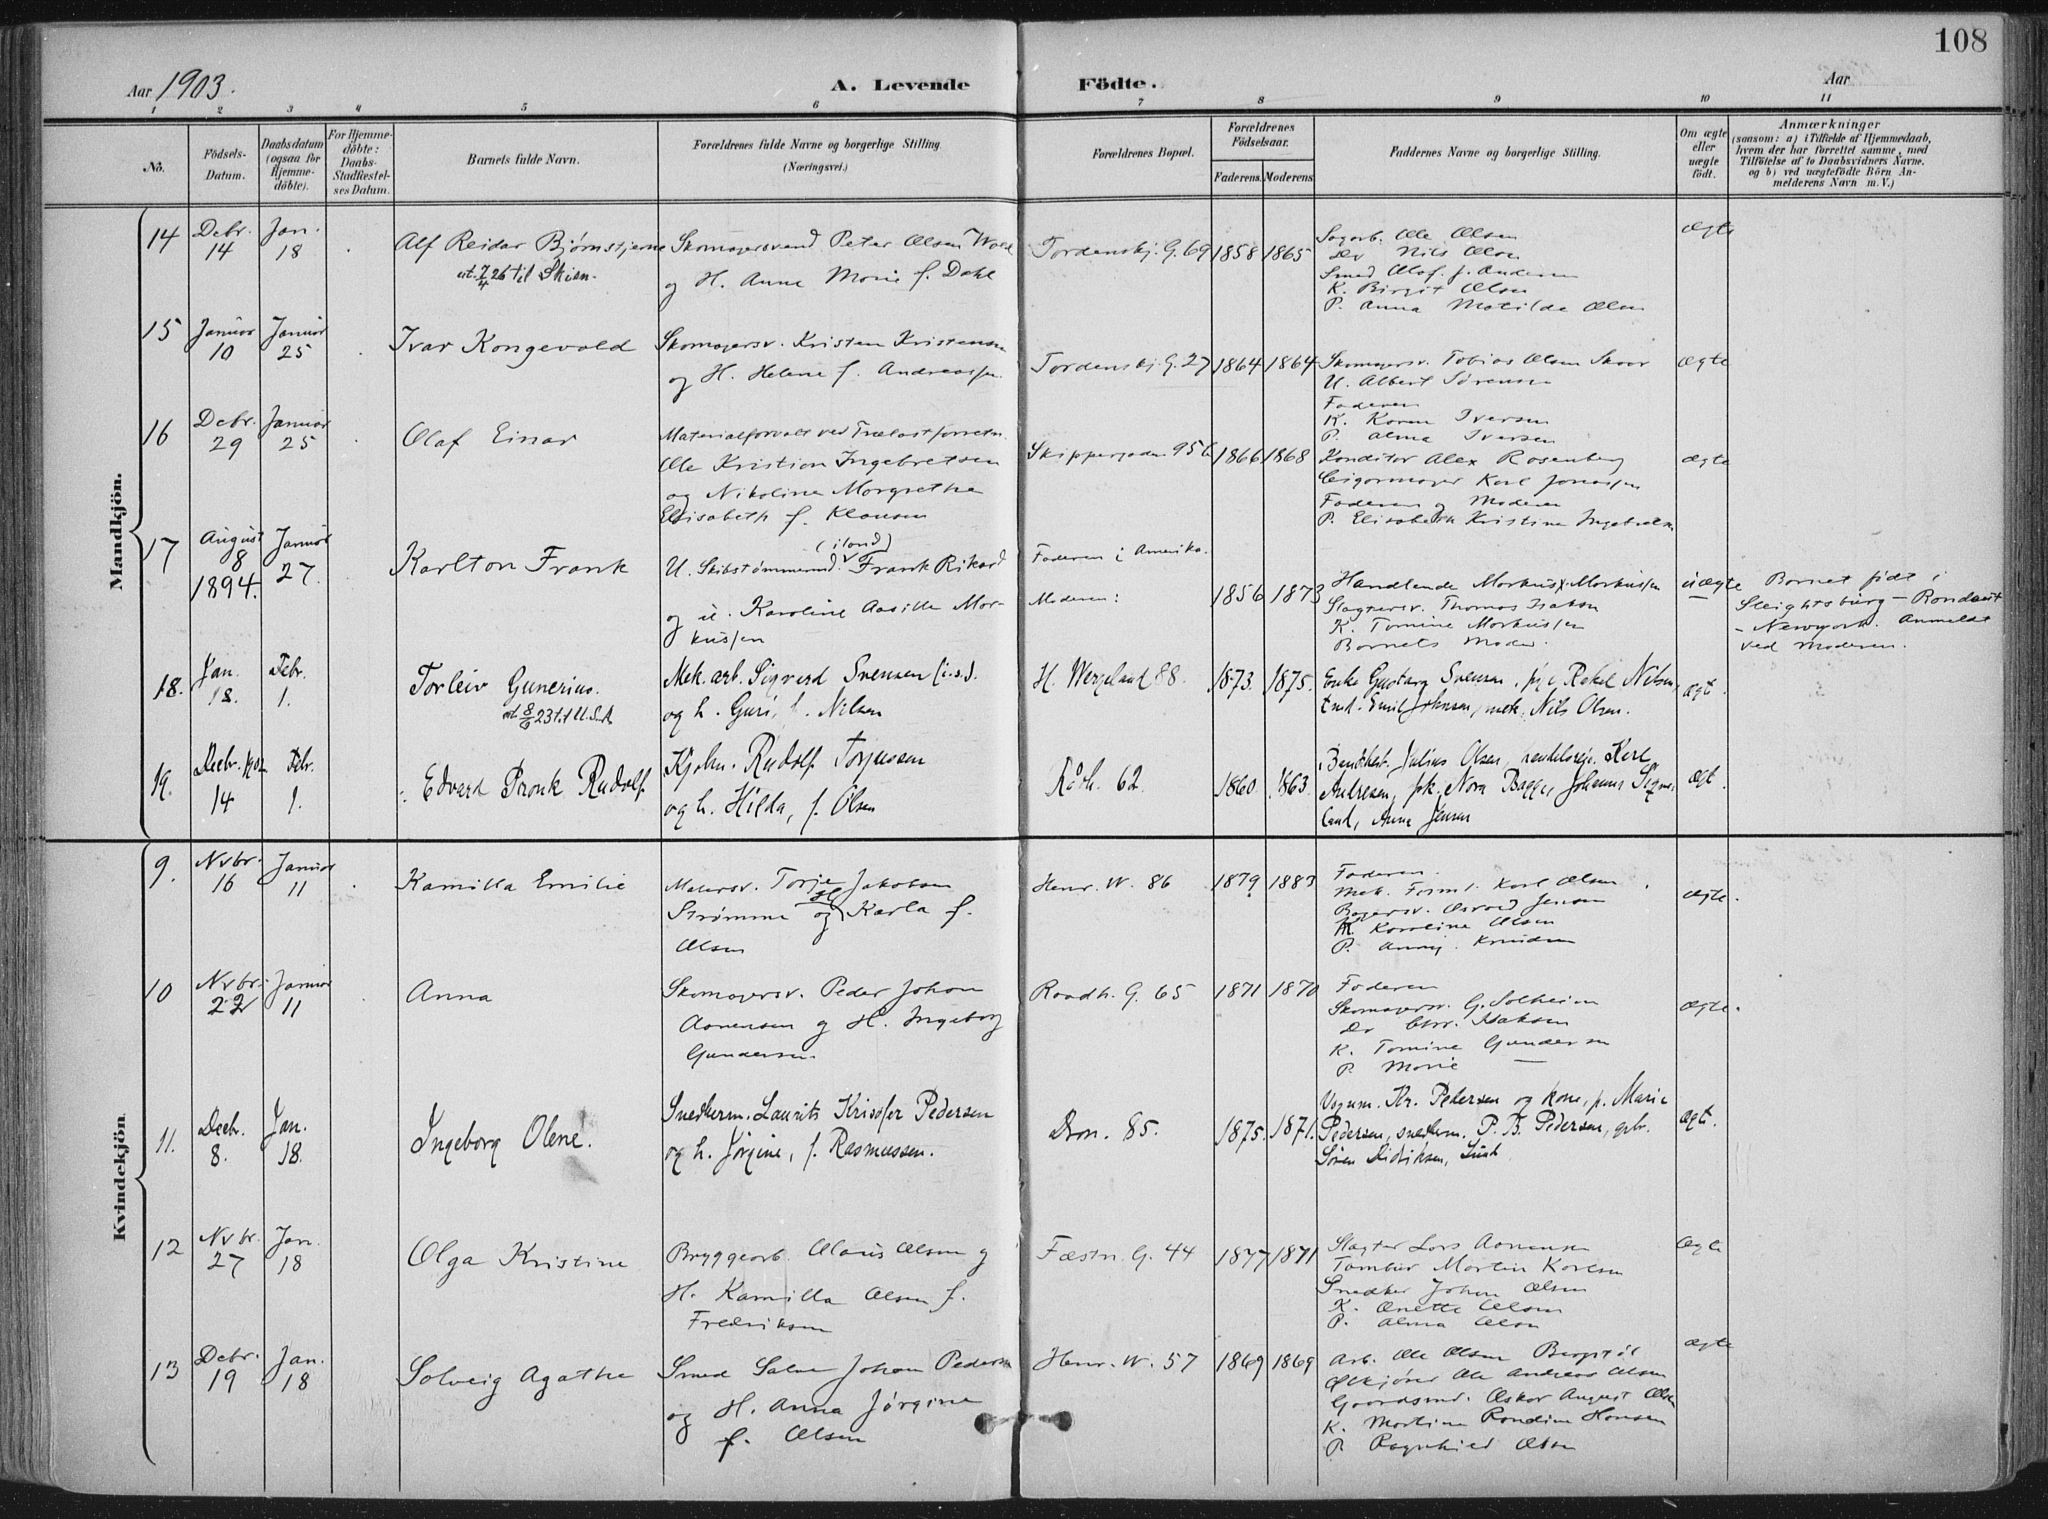 108
Aar 1903.
A. Levende Födte.
Aar
1 2 3 4 5 6 7 8 9 10 11
No.
Födsels-Datum.
Daabsdatum (ogsaa for Hjemme-döbte).
For Hjemme-döbte: Daabs-Stadfæstel-ses Datum.
Barnets fulde Navn.
Forældrenes fulde Navne og borgerlige Stilling.
(Næringsvei.)
Forældrenes Bopæl.
Forældrenes Födselsaar.
Faderens. Moderens.
Faddernes Navne og borgerlige Stilling.
Om ægte eller uægte födt.
Anmærkninger
(saasom: a) i Tilfælde af Hjemmedaab, hvem der har forrettet samme, med Tilföielse af to Daabsvidners Navne. og b) ved uægtefödte Börn An-melderens Navn m. V.)
Mandkjön.
14 Debr. 14 Jan. 18 Alf Reidar Bjørnstjerne
ut. 7/4 26 til Skien.
Skomagersvend Peter Olsen Wold
og H. Anne Marie f. Dahl
Tordenskj. G. 69 1858 1865
Ole Olsen
Do Nils Olsen
Smed Olaf J. Andersen
K. Birgit Olsen
P. Anna Matilde Olsen
ægte
15 Januar 10 Januar 25 Ivar Kongevold
Skomagersv. Kristen Kristensen
og H. Helene f. Andreassen
Tordenskj. G. 27 1864 1864
Skomagersv. Tobias Olsen Skaar
U. Albert Sørensen
Faderen
K. Karen Iversen
P. Alma Iversen
ægte
16 Debr. 29 Januar 25 Olaf Einar
Materialforvalt. ved Trælastforretn.
Ole Kristian Ingebretsen
og Nikoline Margrethe
Elisabeth f. Klausen
Skippergaden 95 b 1866 1868
Konditor Alex Rosenberg
Cigarmager Karl Jonassen
Faderen og Moderen
P. Elisabeth Kristine Ingebretsen
ægte
17 August 8 1894. Januar 27. Karlton Frank
(iland)
U. Skibstømmermd. Frank Rikard
og u. Karoline Aasille Mar-
kussen
Faderen i Amerika.
Moderen:
1856 1873
Handlende Markus Markussen
Slagtersv. Thomas Isaksen
K. Tomine Markussen
Barnets Moder.
uægte
Barnet født i
Sleightsburg - Rondout
- Newyork. Anmeldt
ved Moderen.
18. Jan. 18. Febr. 1. Torleiv Gunerius.
ut 8/6 23 til U.S.A.
Mek. arb. Sigvard Svensen (i.s.).
og h. Guri, f. Nilsen
H. Wergeland 88. 1873. 1875.
Enke Gustava Svensen, pige Rakel Nilsen,
Emil Johnsen, mek. Nils Olsen.
ægt.
19. Decbr. 1902 14 Febr. 1. Edvard Frank Rudolf
Rudolf Torjussen
og h. Hilda, f. Olsen
Råth. 62. 1860. 1863.
Julius Olsen, Karl
Andresen, pk. Nora Bagge, Johannes
land, Anna Jensen
ægt.
Kvindekjön
9. Nvbr. 16 Januar 11 Kamilla Emilie
Malersv. Torje Jakobsen
Strømme og H. Karla f.
Olsen
Henr. W. 86 1879 1883
Faderen.
Mek. Karl Olsen
Bagersv. Osvald Jensen
K. Karoline Olsen
P. Anny Knudsen
ægte.
10 Nvbr. 22 Januar 11 Anna
Skomagersv. Peder Johan
Aanensen og H. Ingeborg
Gundersen
Raadh. G. 65 1871 1870
Faderen
Skomagersv. G. Solheim
Do Chr. Isaksen
K. Tomine Gundersen
P. Marie —
ægte.
11. Decbr. 8. Jan. 18. Ingeborg Olene.
Snedkerm. Laurits Kristofer Pedersen
og h. Jørgine, f. Rasmussen.
Dron. 85. 1875. 1871.
Vognm. Kr. Pedersen og kone, p. Marie
Pedersen, snedkerm. P. B. Pedersen,
Søren Didriksen,
ægt.
12 Nvbr. 27 Jan. 18 Olga Kristine
Bryggearb. Olaus Olsen og
H. Kamilla Olsen f.
Fredriksen
Fæstn. G. 44 1877 1871
Slagter Lars Aanensen
Tambur Martin Karlsen
Snedker Johan Olsen
K. Anette Olsen
P. Alma Olsen
ægte
13 Debr. 19 Jan. 18 Solveig Agathe
Smed Salve Johan Pedersen
og H. Anna Jørgine
f. Olsen
Henr. W. 57 1869 1869
Arb. Ole Olsen
Ølkjører Ole Andreas Olsen
Oskar August Olsen
K. Martine Rondine Hansen
P. Ragnhild Olsen
ægte